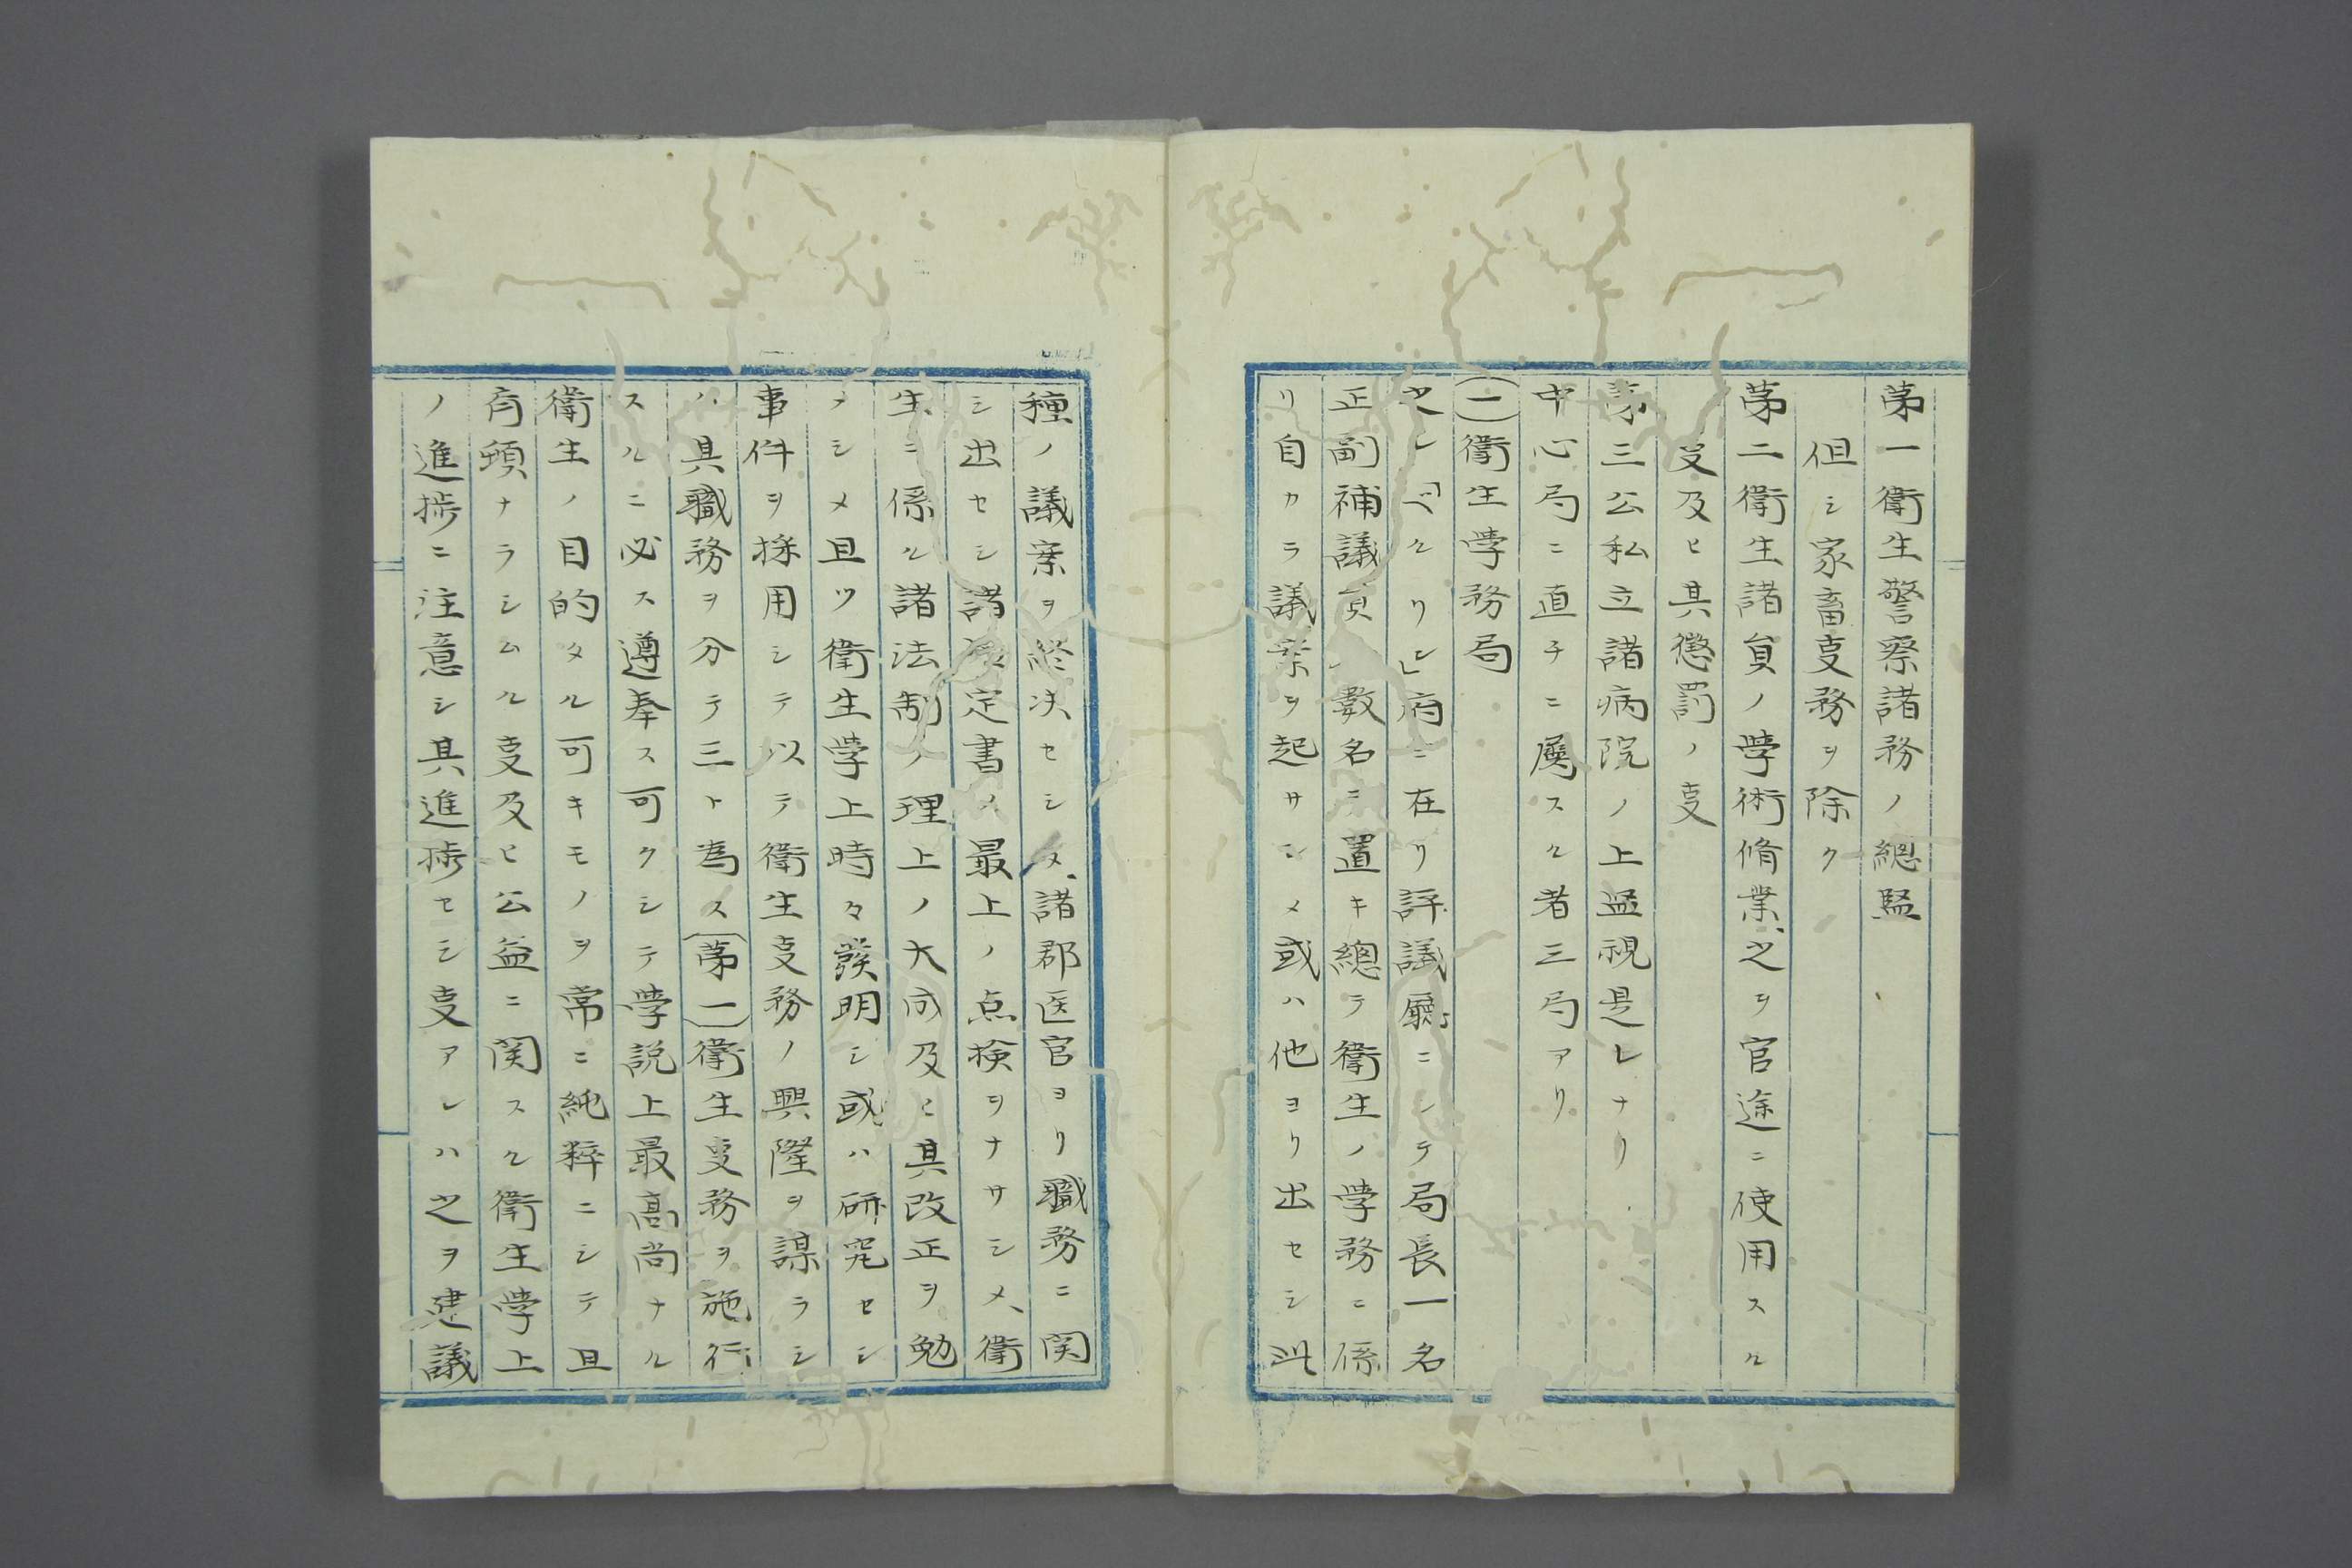 第一衛生警察諸務ノ總監
但シ家畜叓務ヲ除ク
第二衛生諸負ノ學術脩業之ヲ官途ニ使用スル
叓及ヒ其懲罰ノ叓
第三公私立諸病院ノ上盃視是レナリ
中心局ニ直チニ属スル者三局アリ
(一)衛生學務局
之レ「ベルリン」府ニ在リ評議廳ニシテ局長一名
正副補議員数名ヲ置キ總テ衛生ノ學務ニ係
リ自カラ議案ヲ起サシメ或ハ他ヨリ出セシ此
種ノ議案ヲ終決セシメ諸郡医官ヨリ職務ニ関
シ出セシ諸定書ノ最上ノ点検ヲナサシメ、衛
生ニ係ル諸法制ノ理上ノ大成及ヒ其改正ヲ勉
メシメ且ツ衛生學上時々發明シ或ハ研究セシ
事件ヲ採用シテ以テ衛生叓務ノ興隆ヲ謀ラシ
ム其職務ヲ分テ三ト為ス(第一)衛生叓務ヲ施行
スルニ必ス遵奉ス可クシテ學説上最高尚ナル
衛生ノ目的タル可キモノヲ常ニ純粋ニシテ且
有頭ナラシムル叓及ヒ公益ニ関スル衛生學上
ノ進捗ニ注意シ其進捗セシ叓アレハ之ヲ建議